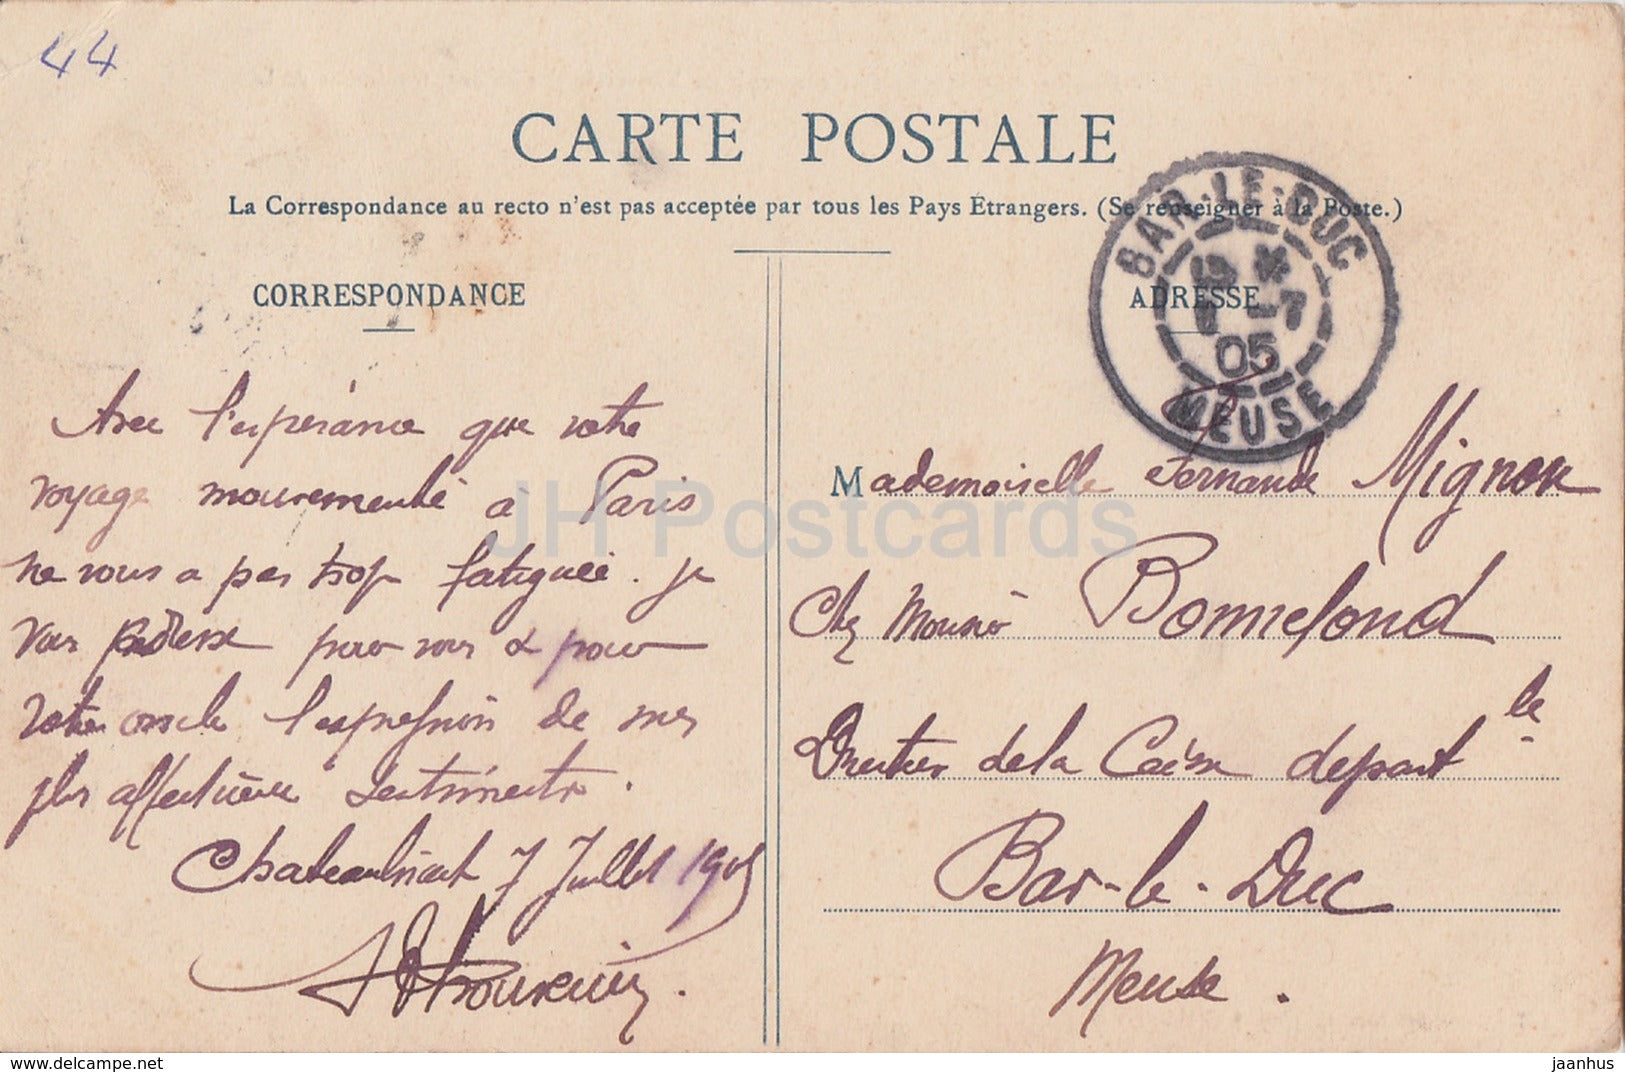 44
CARTE POSTALE
La Correspondance au recto n'est pas acceptée par tous les Pays Étrangers. (Se renseigner à la Poste.)
BAR-LE-DUC
-7
05
MEUSE
CORRESPONDANCE
Avec l'espérance que votre
voyage mouvementé à Paris
ne vous a pas trop fatiguée. je
vous adresse pour vous & pour
votre oncle l'expression de mes
plus affectueux sentiments.
Chateaubriant 7 Juillet 1905
ADRESSE
Mademoiselle Fernande Mignon
Chez Monsieur Bonnefond
Directeur de la Caisse départ le
Bar-le-Duc
Meuse.
JH Postcards
delcampe.net
jaanhus